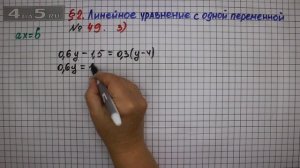 4 5
§2. Линейное уравнение с одной переменной
ах=в
№ 49. 3)
0,6у - 1,5 = 0,3(у-4)
0,6у =